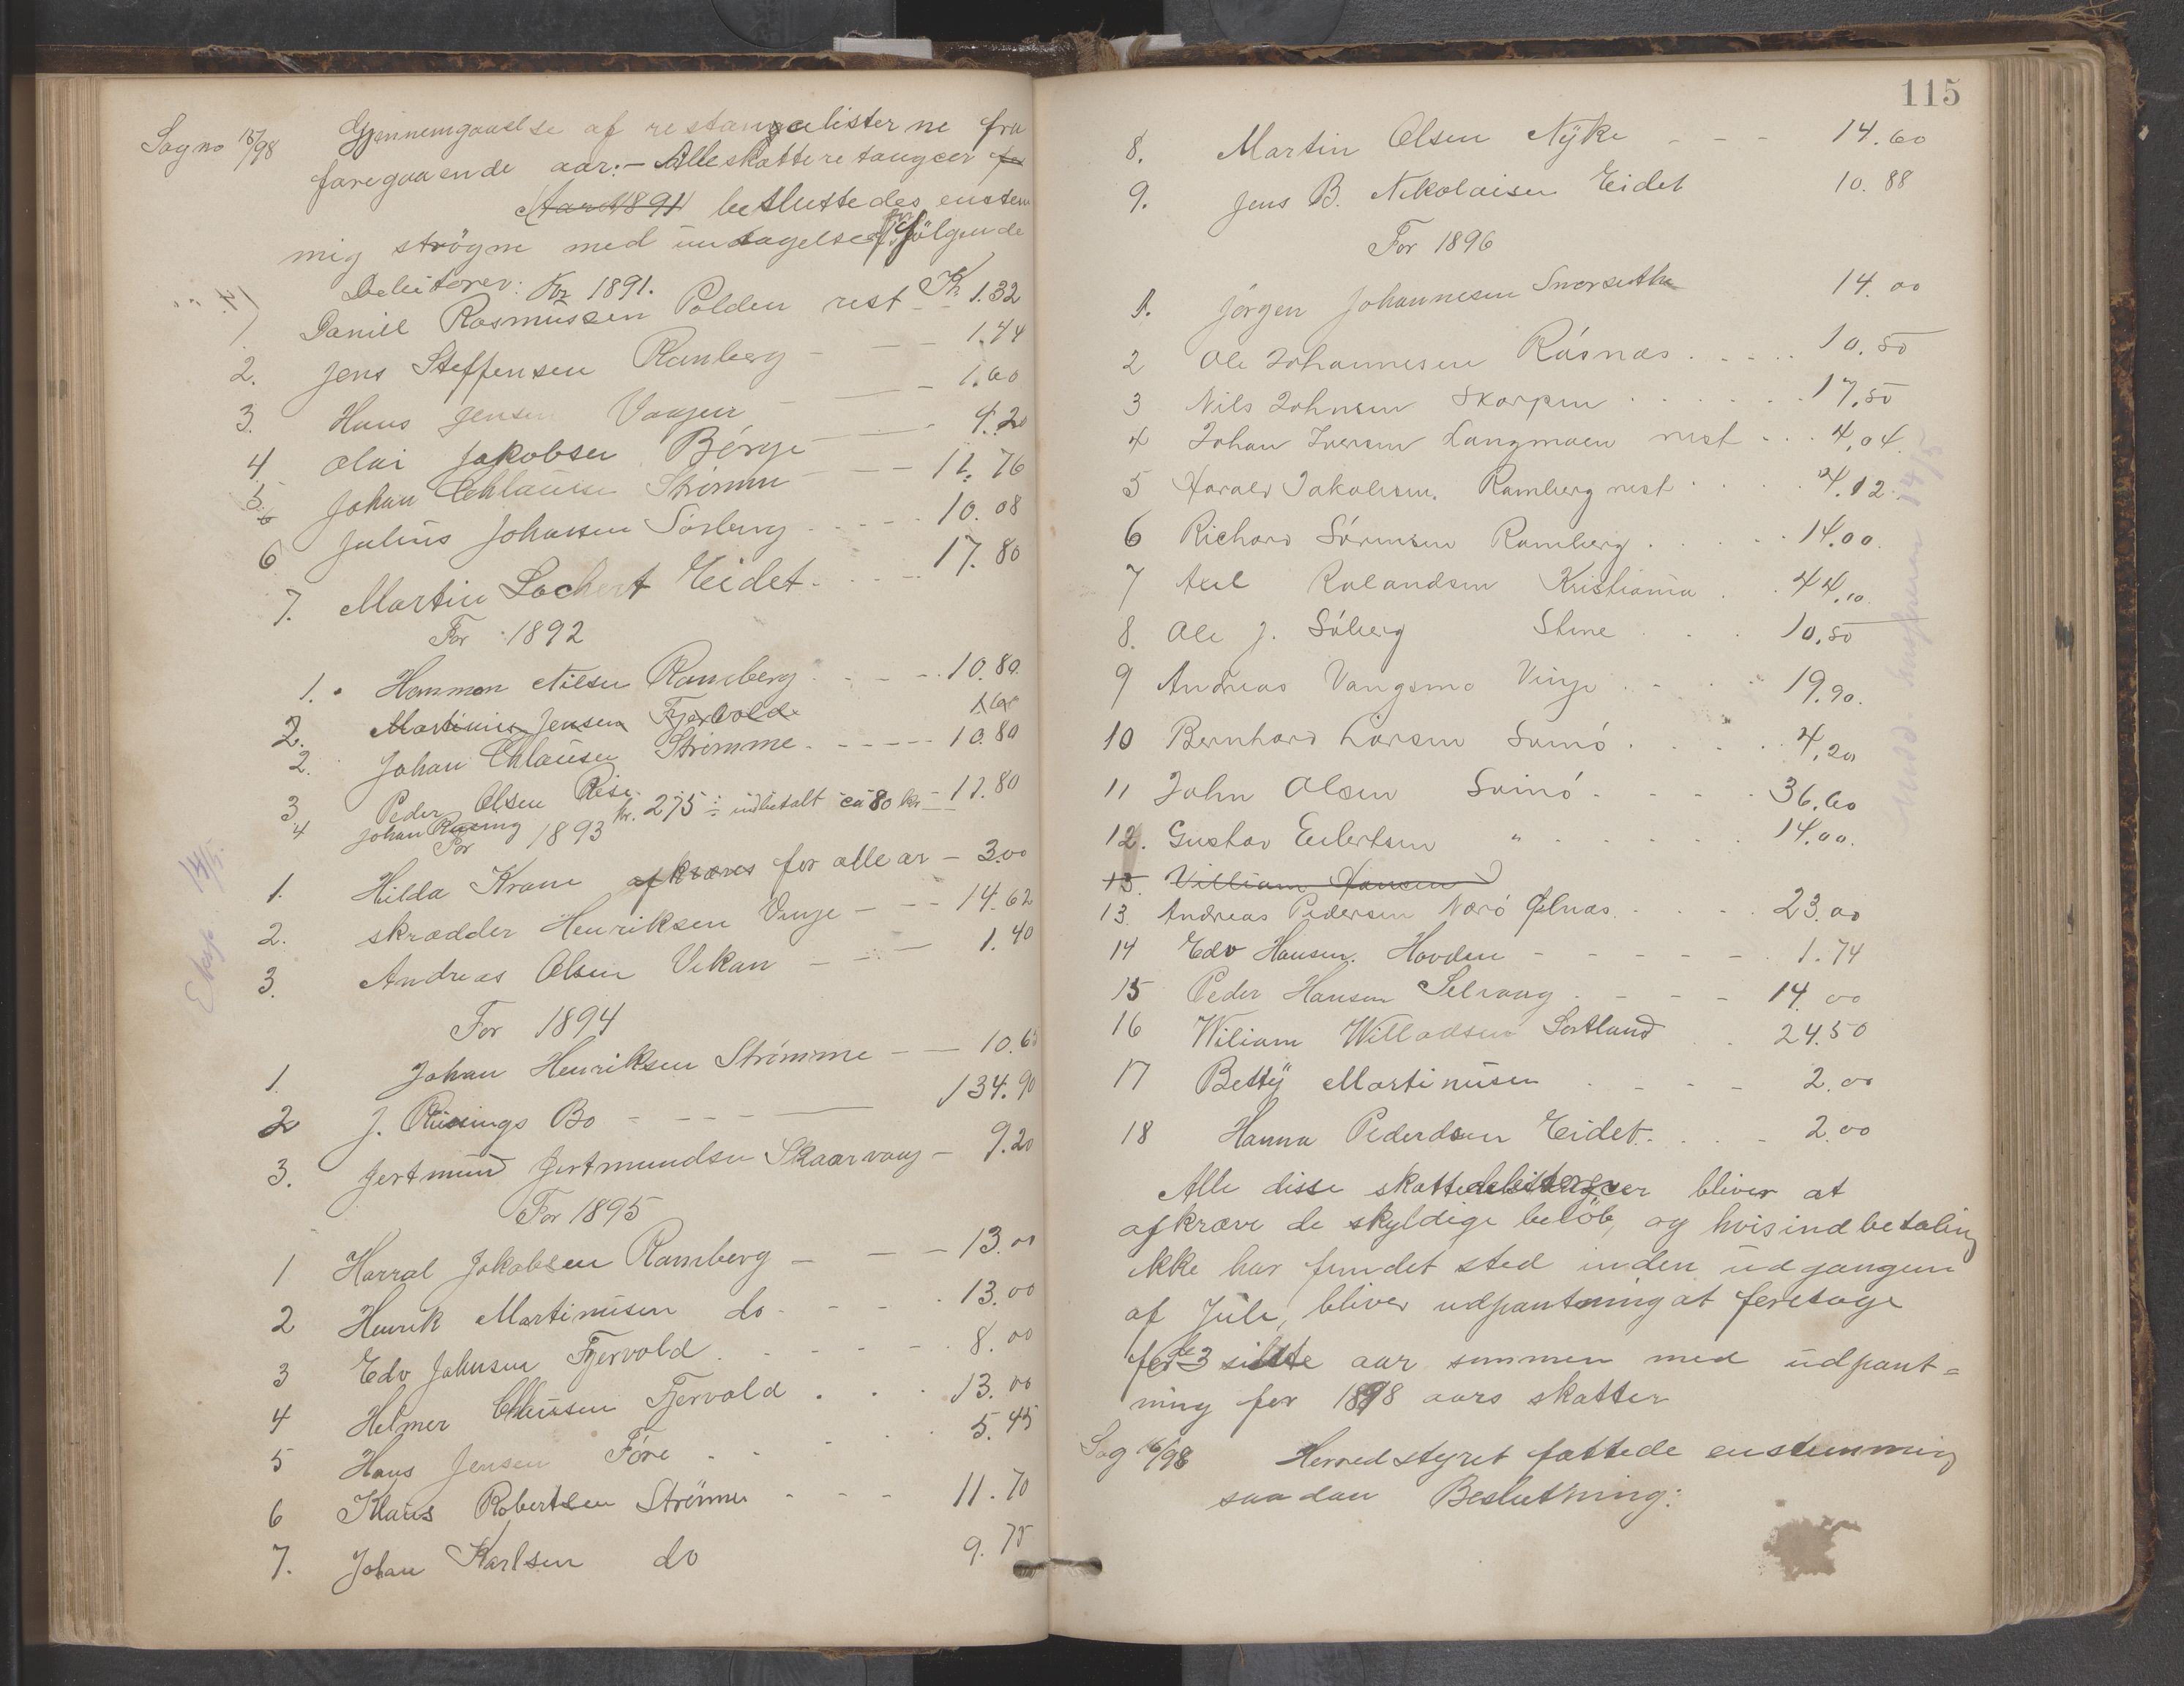 Sag no 15/98 Gjennemgaaelse af restancelisterne fra
foregaaende aar:- Alle skatterestancer for
Aaret 1891 besluttedes enstem
mig strøgne med undtagelse af følgende
Debitorer: For 1891.
1) Daniel Rasmussen Polden rest Kr 1.32
2. Jens Steffensen Ramberg - - - 1.44
3. Hans Jensen - - 1.60
4. Olai Jakobsen Børge - - 4.20
5. Johan Chlausen Strømme - - 11.76
6 Julius Johansen Sørberg - - - - 10.08
7. Martin Lochert Eidet - - - 17.80
For 1892
1. Hemmon Nilsen Ramberg - - - 10.80
2. Martinus Jensen Fjervold
2. Johan Chlausen Strømme - - - - - 10.80
3 Peder Olsen Rise - - 11.80
4 Johan Rusing kr. 275 ÷ indbetalt ca 80 kr
For 1893
1. Hilda Krane afkræves for alle aar - 3.00
2. skrædder Henriksen Vinje - - - 14.62
3. Andreas Olsen Vikan - - - 1.40
For 1894
1. Johan Henriksen Strømme - - 10.65
2 J. Rusings Bo - - - - 134.90
3. Jertmund Jertmundsen Skaarvaag - 9.20
For 1895
1 Harral Jakobsen Ramberg - - - 13.00
2 Henrik Martinusen do - - - 13.00
3 Edv Johnsen Fjervold - - - - 8.00
4 Helmer Chlausen Fjervold . . . 13.00
5 Hans Jensen Føre - - - . 5.45
6 Klaus Robertsen Strømme - - - 11.70
7. Johan Karlsen do 9.75
Eksp. 14/5.
115
8. Martin Olsen Nyke - - - 14.60
9. Jens B. Nikolaisen Eidet 10.88
For 1896
1. Jørgen Johannesen 14.00
2 Ole Johannesen Råsnæs . . . . . 10.50
3 Nils Johnsen Skorpen . . . . . . 17.50
4 Johan Iversen Langmoen rest . . . 4.04.
5 Harald Jakobsen. Ramberg rest . . . . 4.12.
6 Richard Sørensen Ramberg . . . . 14.00.
7 Axel Rolandsen Kristiania . . 44.10.
8. Ole J. Søberg Stene . . . 10.50
9 Andreas Vangsmo Vinje . . . . 19.90.
10 Bernhard Larsen Svinø . . . . . 4.20
11 John Olsen Svinø . . . . 36.60
12. Gustav Eilertsen " . . . . . 14.00.
13. Villiam Hansen
13. Andreas Pedersen Nærø Ølnæs . . . . 23.00
14 Edv Hansen. Hovden - - - - - . 1.74
15 Peder Hansen Selvaag . - - - 14.00
16 Wiliam Willadsen Sortland . . 24.50
17 Betty Martinusen . - - - 2.00
18 Hanna Pedersen Eidet . . . - 2.00
Alle disse bliver at
afkræve de skyldige beløb, og hvis indbetaling
ikke har fundet sted inden udgangen
af Juli, bliver udpantning at foretage
for de 3 sidste aar sammen med udpant=
ning for 1898 aars skatter
Sag 16/98 Herredstyret fattede enstemmig
saadan Beslutning: